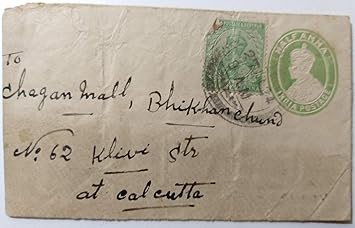 HALF ANNA
INDIA POSTAGE
To
Chagan mall, Bhikhanchund
No. 62 Klivi Str
at Calcutta